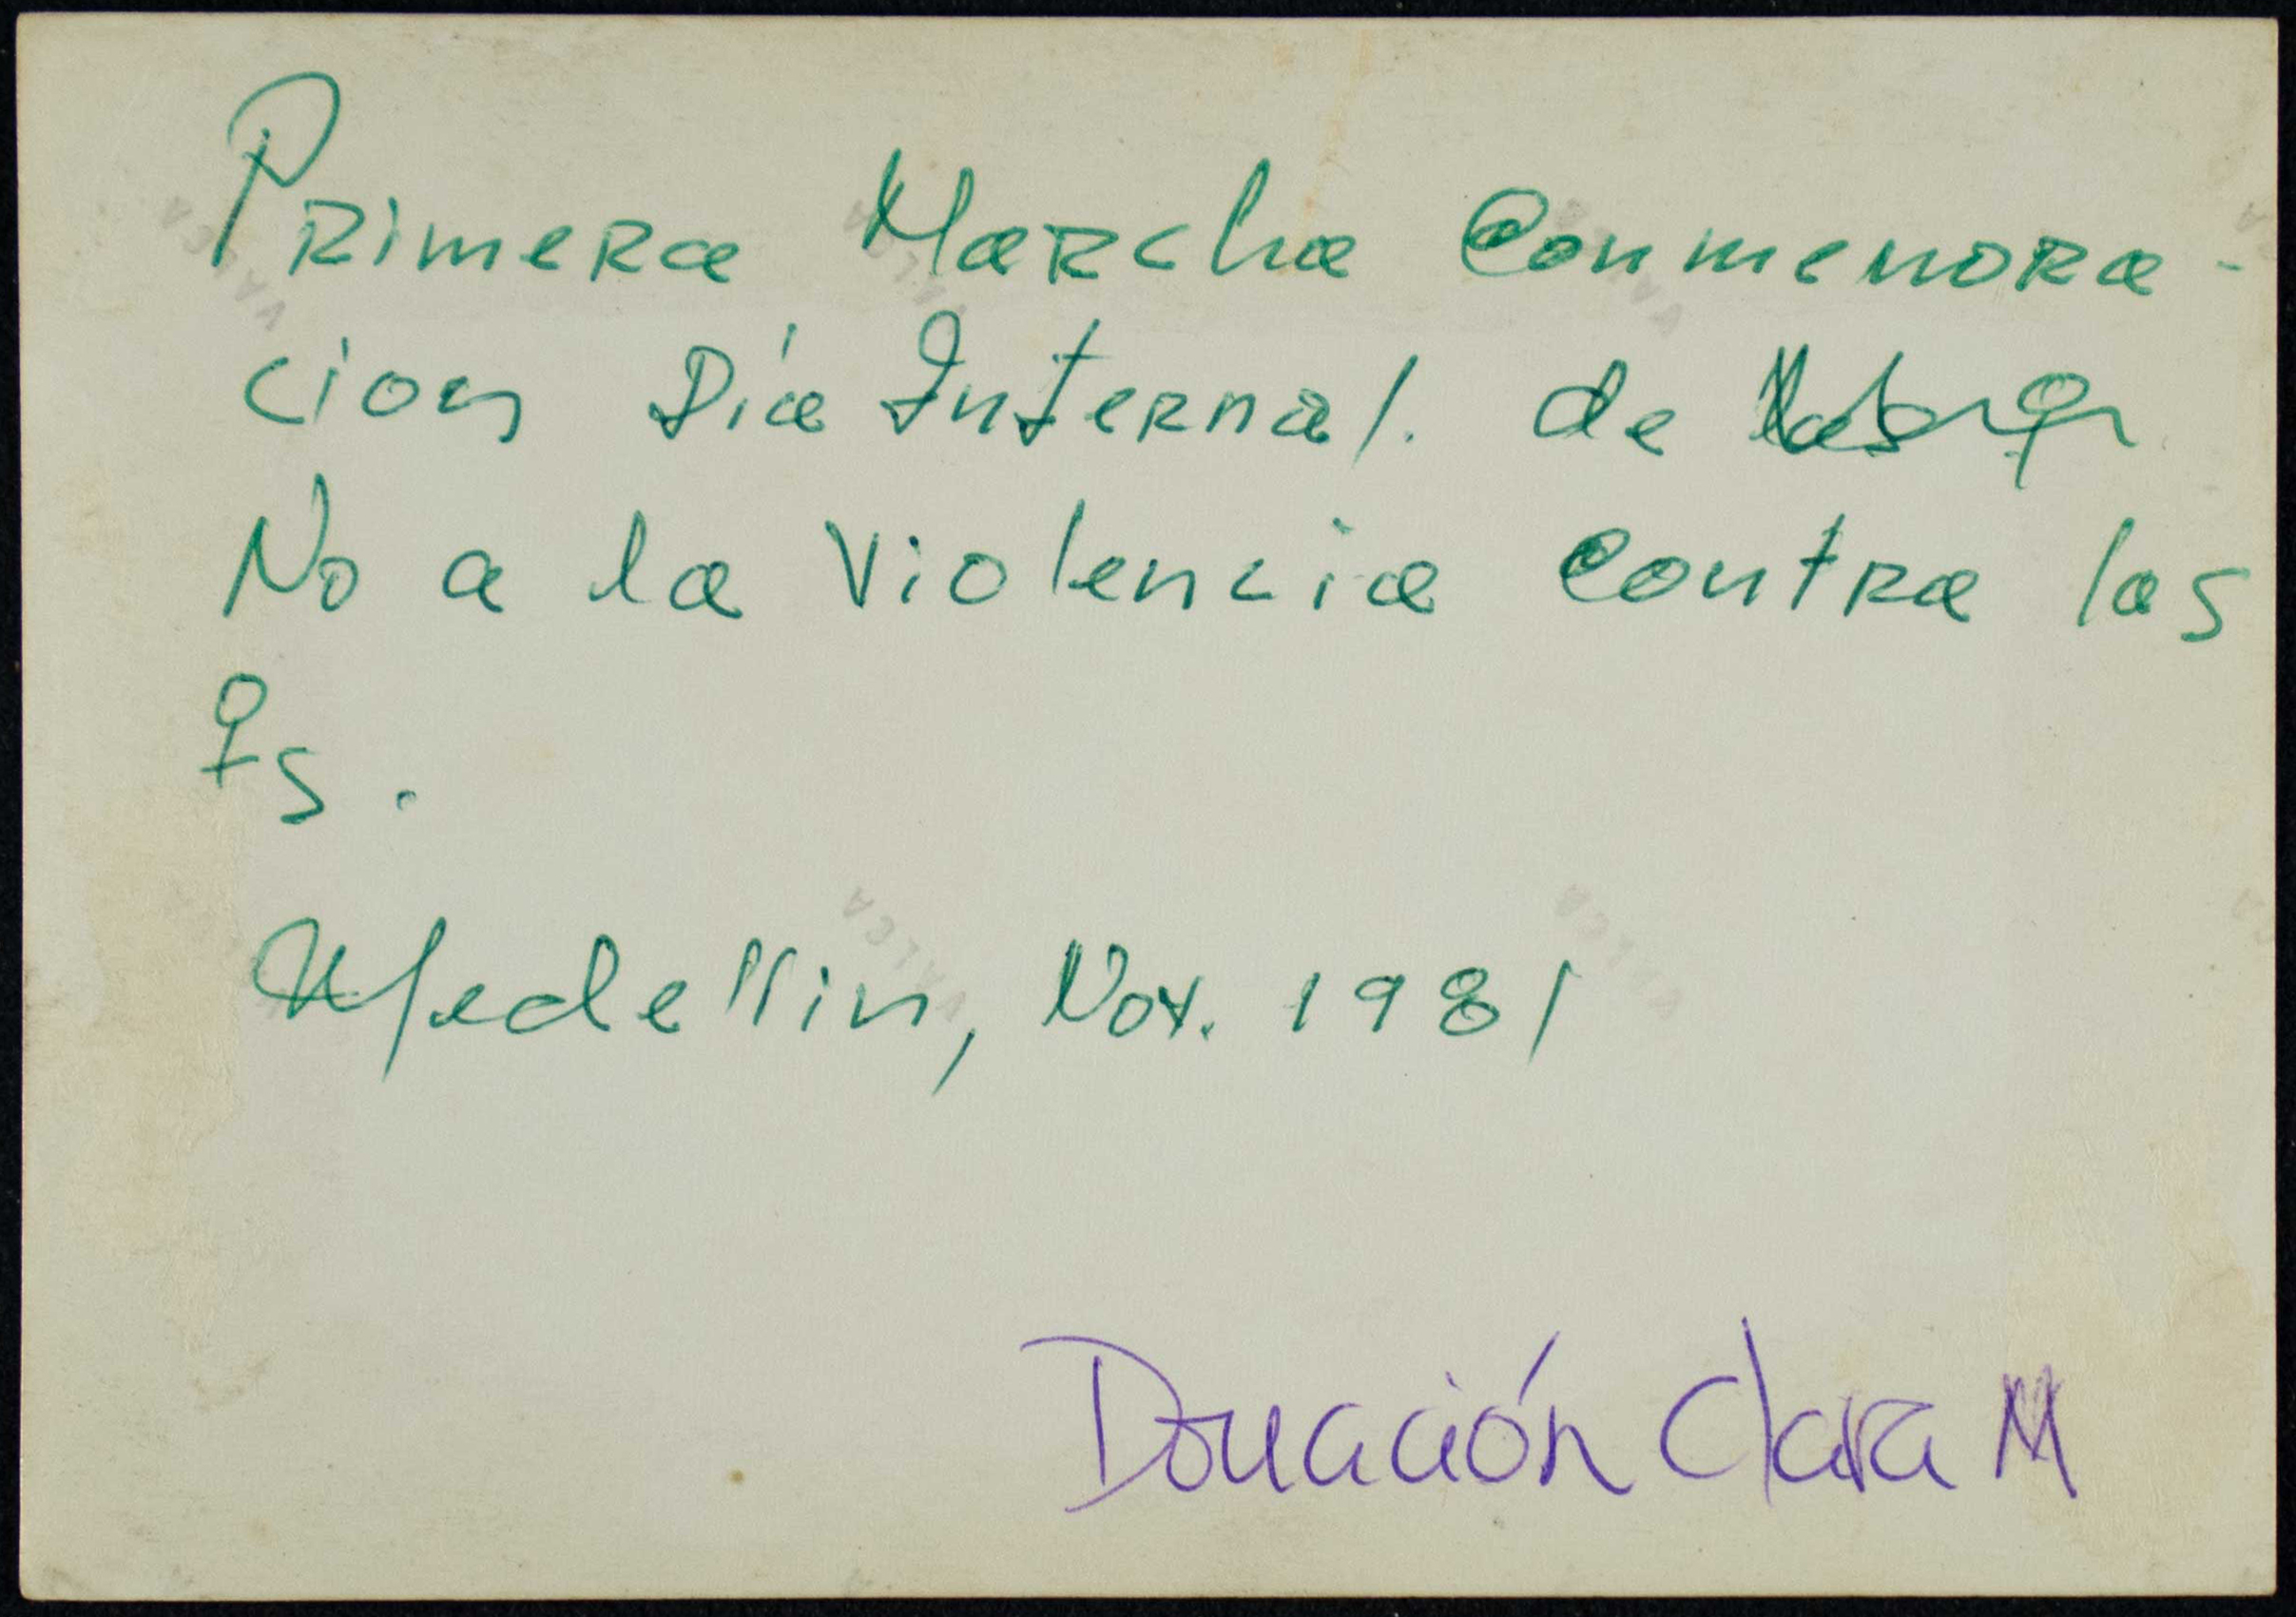 Primera Marcha Conmemora-
cion Día Internal. de
No a la Violencia Contra las
♀s.
Medellin, Nov. 1981
Donación Clara M
VALCA